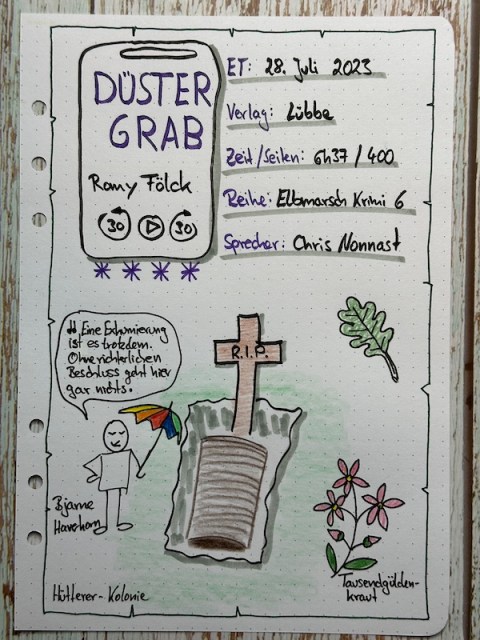 DÜSTER
GRAB
Romy Fölck
30 30
ET: 28. Juli 2023
Verlag: Lübbe
Zeit/Seiten: 6h37 / 400
Reihe: Elbmarsch Krimi 6
Sprecher: Chris Nonnast
"Eine Exhumierung
ist es trotzdem.
Ohne richterlichen
Beschluss geht hier
gar nichts.
R.I.P.
Bjarne
Haverkorn
Hütterer-Kolonie
Tausendgülden-
kraut